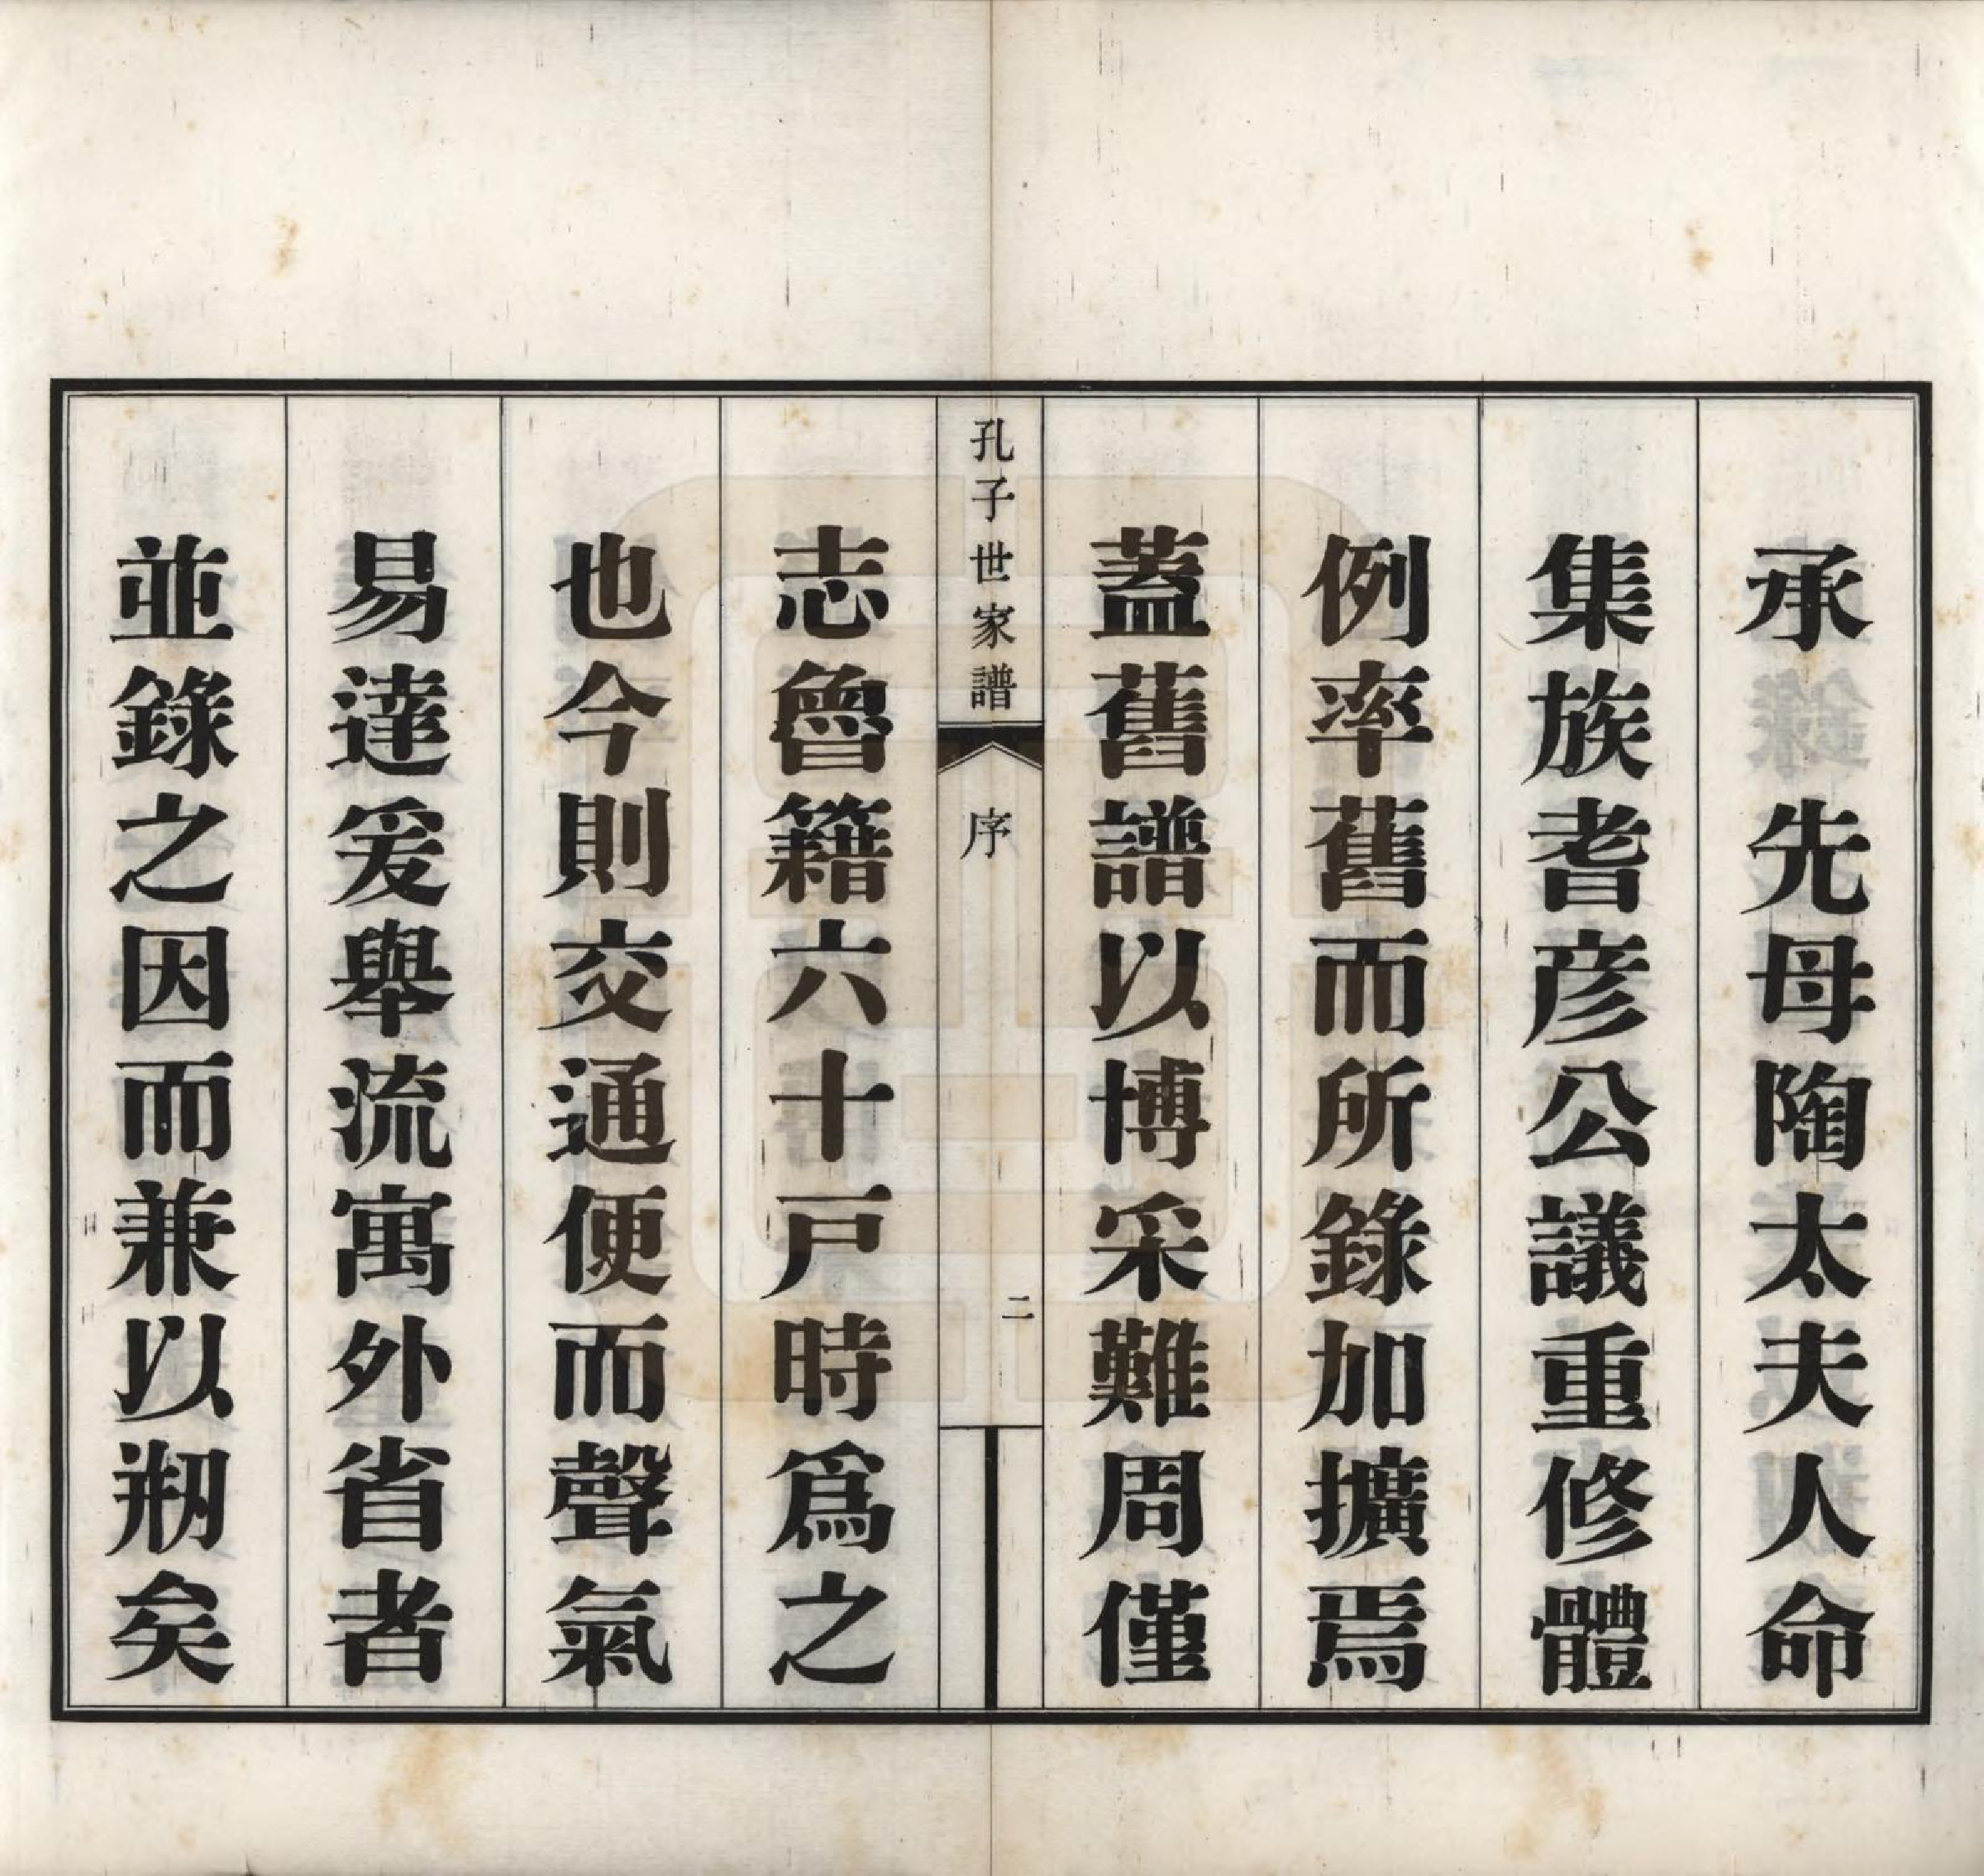 承　先母陶太夫人命
集族耆彦公議重修體
例率舊而所錄加擴焉
蓋舊譜以博采難周僅
孔子世家譜
序
二
志魯籍六十戸時爲之
也今則交通便而聲氣
易達爰舉流寓外省者
並錄之因而兼以剏矣